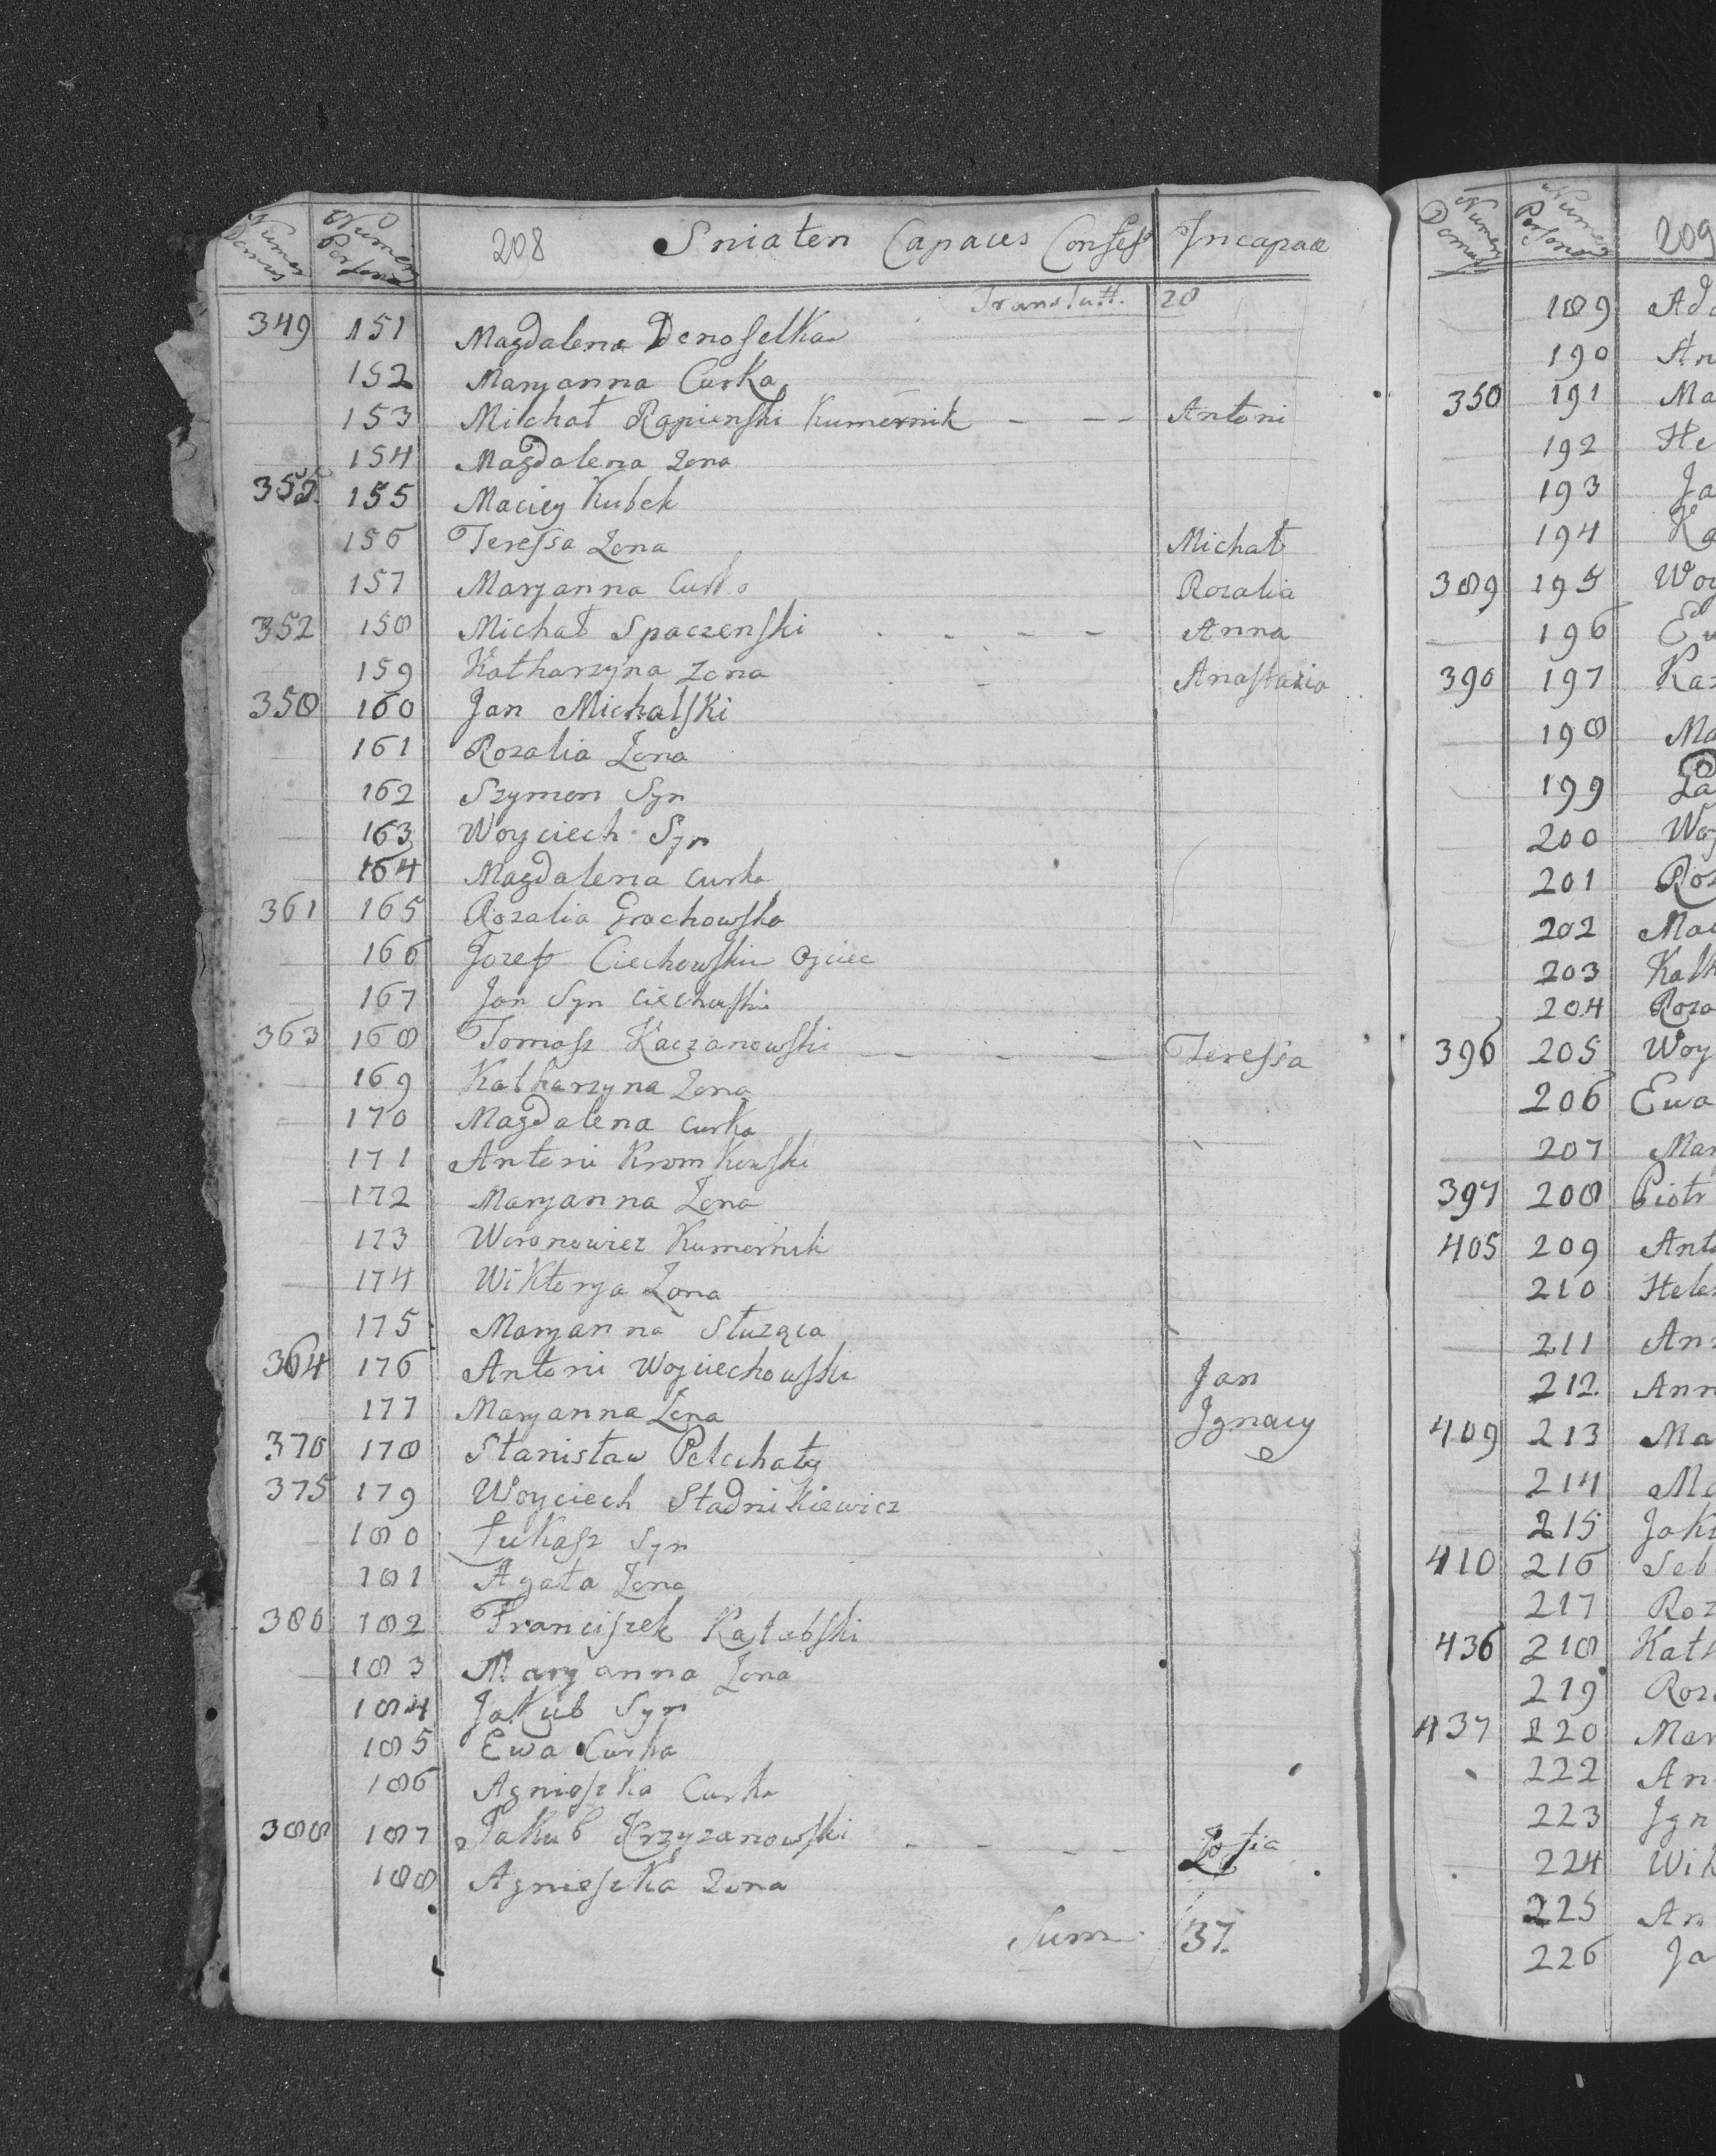 Numer Domus Numer Persona 208 Sniaten Capaces Confess Incapace
Translatt. 28
349 151 Magdalena Denoselka
152 Maryanna Curka
153 Michał Rapienski Kumernik - - - Antoni
154 Magdalena Zona
355. 155 Maciey Kubek
156 Teressa Zona Michał
157 Maryanna Curka Rozalia
352 158 Michał Spaczenski - - - - Anna
159 Katharzyna Zona - - Anastazia
358 160 Jan Michalski
161 Rozalia Zona
162 Szymon Syn
163 Woyciech Syn
164 Magdalena curka
361 165 Rozalia Grachowska
166 Jozef Ciechowski Oyciec
167 Jan Syn Ciechowski
363 168 Tomasz Kaczanowski - - - - Teressa
169 Katharzyna Zona
170 Magdalena curka
171 Antoni Kromkowski
172 Maryanna Zona
173 Woronowicz Kumernik
174 Wiktorya Zona
175 Maryanna Służąca
364 176 Antoni Woyciechowski Jan
177 Maryanna Zona Jgnacy
370 178 Stanisław Pelechaty
375 179 Woyciech Stadnikiewicz
180 Łukasz Syn
181 Agata Zona
380 182 Franciszek
183 Maryanna Zona
184 Jakub Syn
185 Ewa Curka
186 Agnioszka Curka
388 187 Jakub Krzyzanowski - - - - Zofia
188 Agnieszka Zona
Sum 37.
Numer Domus Numer Persona 209
189 Ada
190 An
350 191 Ma
192 He
193 Ja
194 Ka
389 195 Woy
196 Ew
390 197 Kaz
198 Ma
199 Pa
200 Woy
201 Roz
202 Mac
203 Kath
204 Roza
396 205 Woy
206 Ewa
207 Mar
397 208 Piotr
405 209 Anto
210 Hele
211 Ann
212. Ann
409 213 Ma
214 Ma
215 Jaku
410 216 Seb
217 Roz
436 218 Kath
219 Roza
437 220 Mar
222 An
223 Jgn
224 Wik
225 An
226 Ja